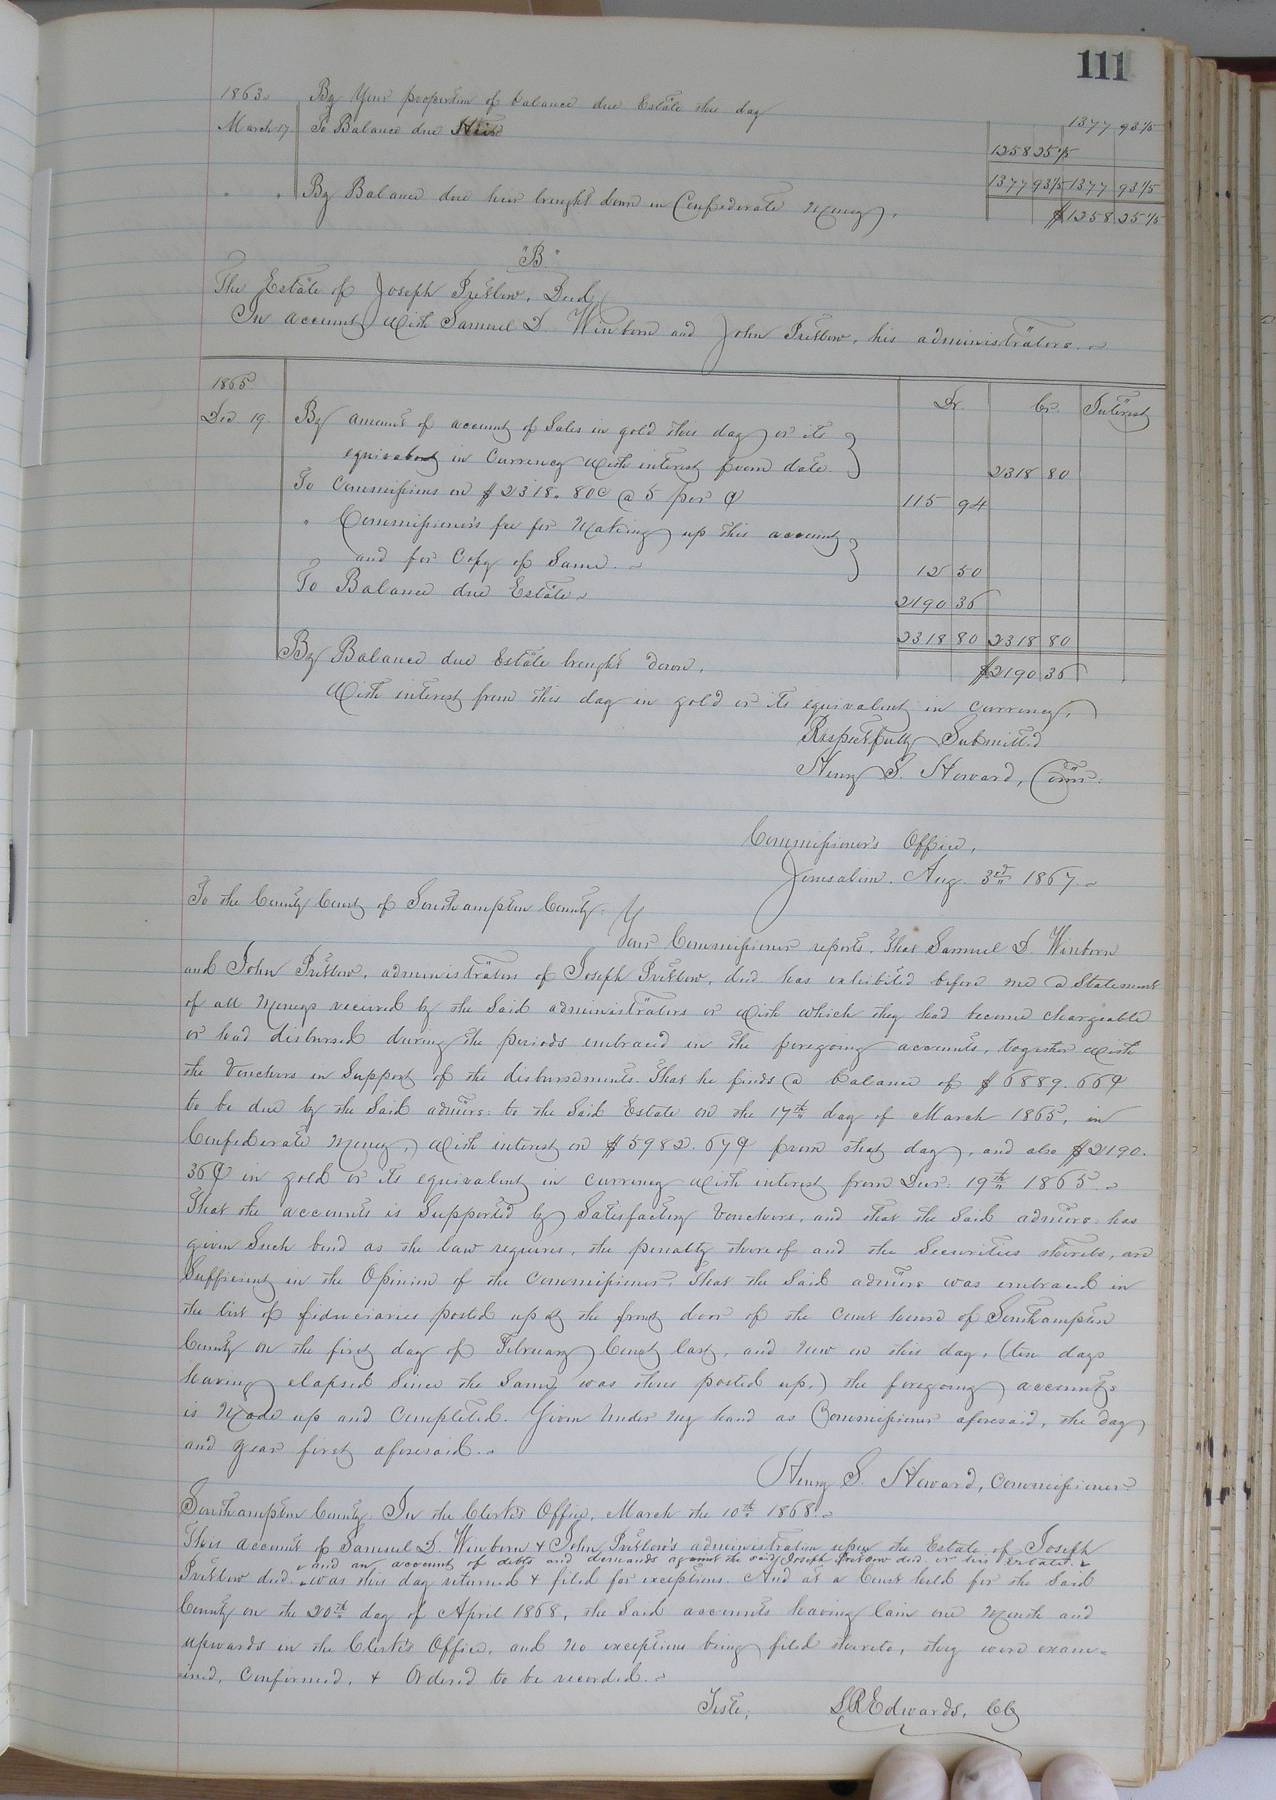 111
1863. By Your proportion of balance due Estate this day 1377 93 1/5
March 17 To Balance due Heir 1258 25 1/5
1377 93 1/5 1377 93 1/5
" " By Balance due heir brought down in Confederate Money, $1258 25 1/5
"B"
The Estate of Joseph Pretlow, Decd,
In account with Samuel D. Winborn and John Pretlow, his administrators.
1865 Dr. Cr. Interest
Dec 19. By amount of account of Sales in gold this day or its
equivalent in Currency with interest from date. 2318 80
To Commissions on $2318.80c @ 5 per C 115 94
" Commissioner's fee for Making up this account
and for Copy of Same. 12 50
To Balance due Estate 2190 36
2318 80 2318 80
By Balance due Estate brought down. $2190 36
With interest from this day in gold or its equivalent in currency,
Respectfully Submitted
Henry S. Howard, Comr.
Commissioner's Office,
Jerusalem. Aug. 3rd 1867.
To the County Court of Southampton County.
Your Commissioner reports. That Samuel D. Winborn
and John Pretlow, administrators of Joseph Pretlow, decd has exhibited before me a Statement
of all Moneys received by the Said administrators or with which they had become chargeable
or had disbursed during the periods embraced in the foregoing accounts, together with
the Vouchers in Support of the disbursements. That he finds a balance of $6889.66¢
to be due by the Said admors. to the Said Estate on the 17th day of March 1865, in
Confederate Money, with interest on $5982.67¢ from that day, and also $2190.
36¢ in gold or its equivalent in currency with interest from Decr. 19th 1865.
That the accounts is Supported by Satisfactory Vouchers, and that the Said admors. has
given Such bond as the law requires, the penalty thereof and the Securities thereto, are
Sufficient in the Opinion of the Commissioner. That the Said admors was embraced in
the list of fiduciaries posted up at the front door of the court house of Southampton
County on the first day of February Court last, and Now on this day, (ten days
having elapsed Since the Same was thus posted up,) the foregoing accounts
is Made up and Completed. Given Under My hand as Commissioner aforesaid, the day
and year first aforesaid.
Henry S. Howard, Commissioner
Southampton County. In the Clerk's Office, March the 10th 1868.
This account of Samuel D. Winborn & John Pretlow's administration upon the Estate of Joseph
and an account of debts and demands against the said Joseph Pretlow decd or his estate.
Pretlow decd. was this day returned & filed for exceptions. And at a Court held for the Said
County on the 20th day of April 1868, the Said accounts having lain one Month and
upwards in the Clerk's Office, and No exceptions being filed thereto, they were exam-
ined, Confirmed, & Ordered to be recorded.
Teste, L R Edwards, CC